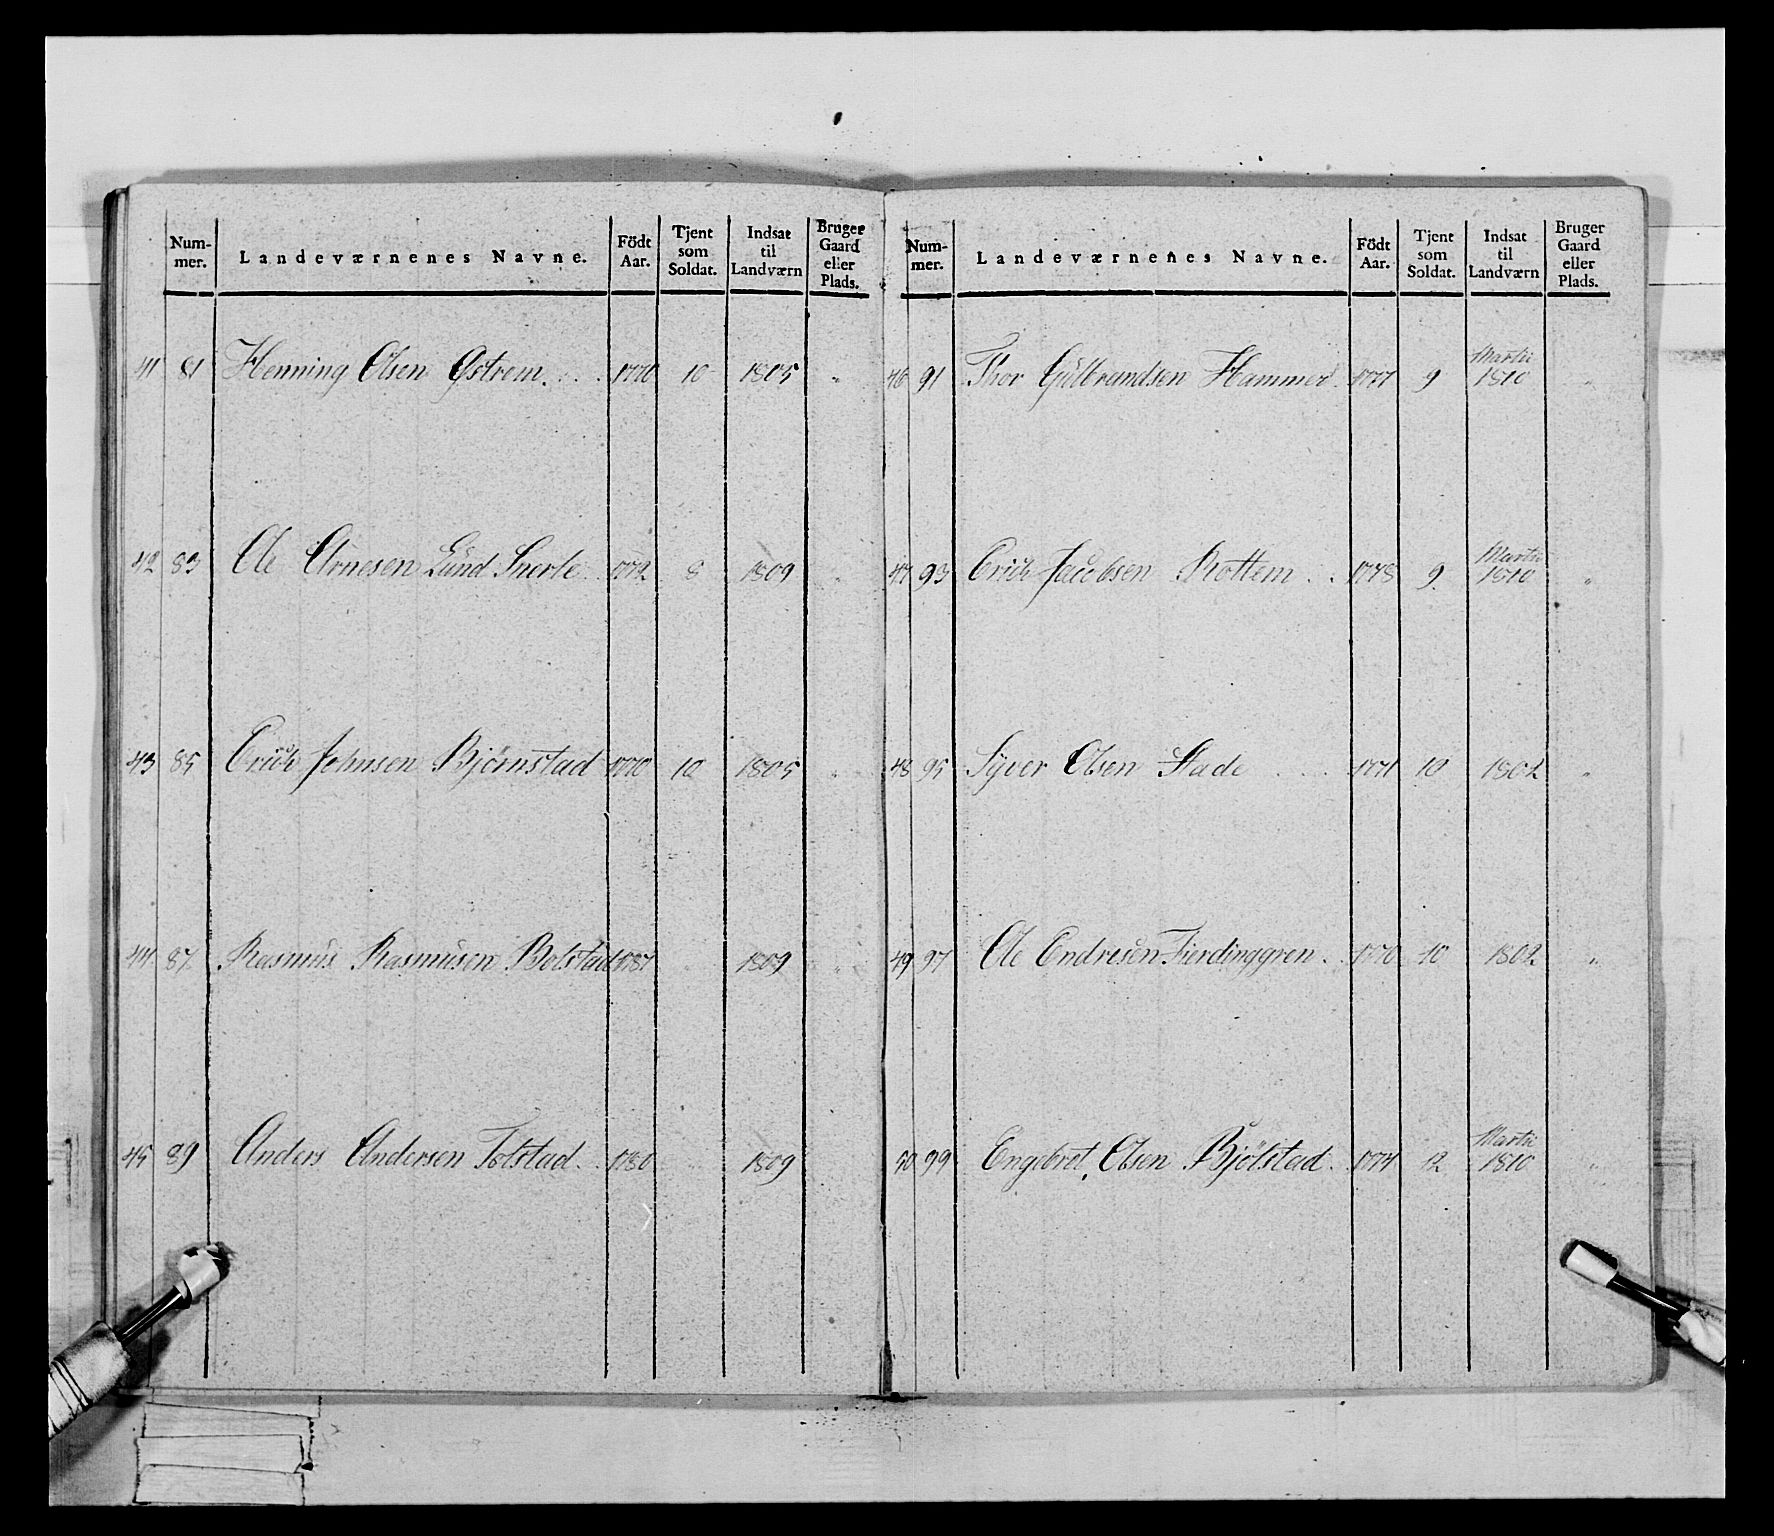 Num-
mer.
Landeværnenes Navne.
Födt
Aar.
Tjent
som
Soldat.
Indsat
til
Landværn
Bruger
Gaard
eller
Plads.
41 81 Henning Olsen Østrem. . . 10 1805 "
42 83 Ole Arnesen Lund Snerle . 1772 8 1809 "
43 85 Erich Johnsen Bjørnstad 1770 10 1805 "
44 87. Rasmus Rasmusen Bolstad 1787 " 1809 "
45 89 Anders Andersen Tolstad. . 1780 1809
Num-
mer.
Landeværnenes Navne.
Födt
Aar.
Tjent
som
Soldat.
Indsat
til
Landværn
Bruger
Gaard
eller
Plads.
46 91 Thor Gülbrandsen Hammer. 1777 9 Martii
1810 "
47 93 Erich Jacobsen Rottem . . 1778 9 Martii
1810 "
48 95 Syver Olsen Slade . . . 1771 10 1802 "
49 97 Ole Endresen Fierdinggren . . 1770 10 1802 "
50 99 Engebret Olsen Bjölstad. 1774 12 Martii
1810 "